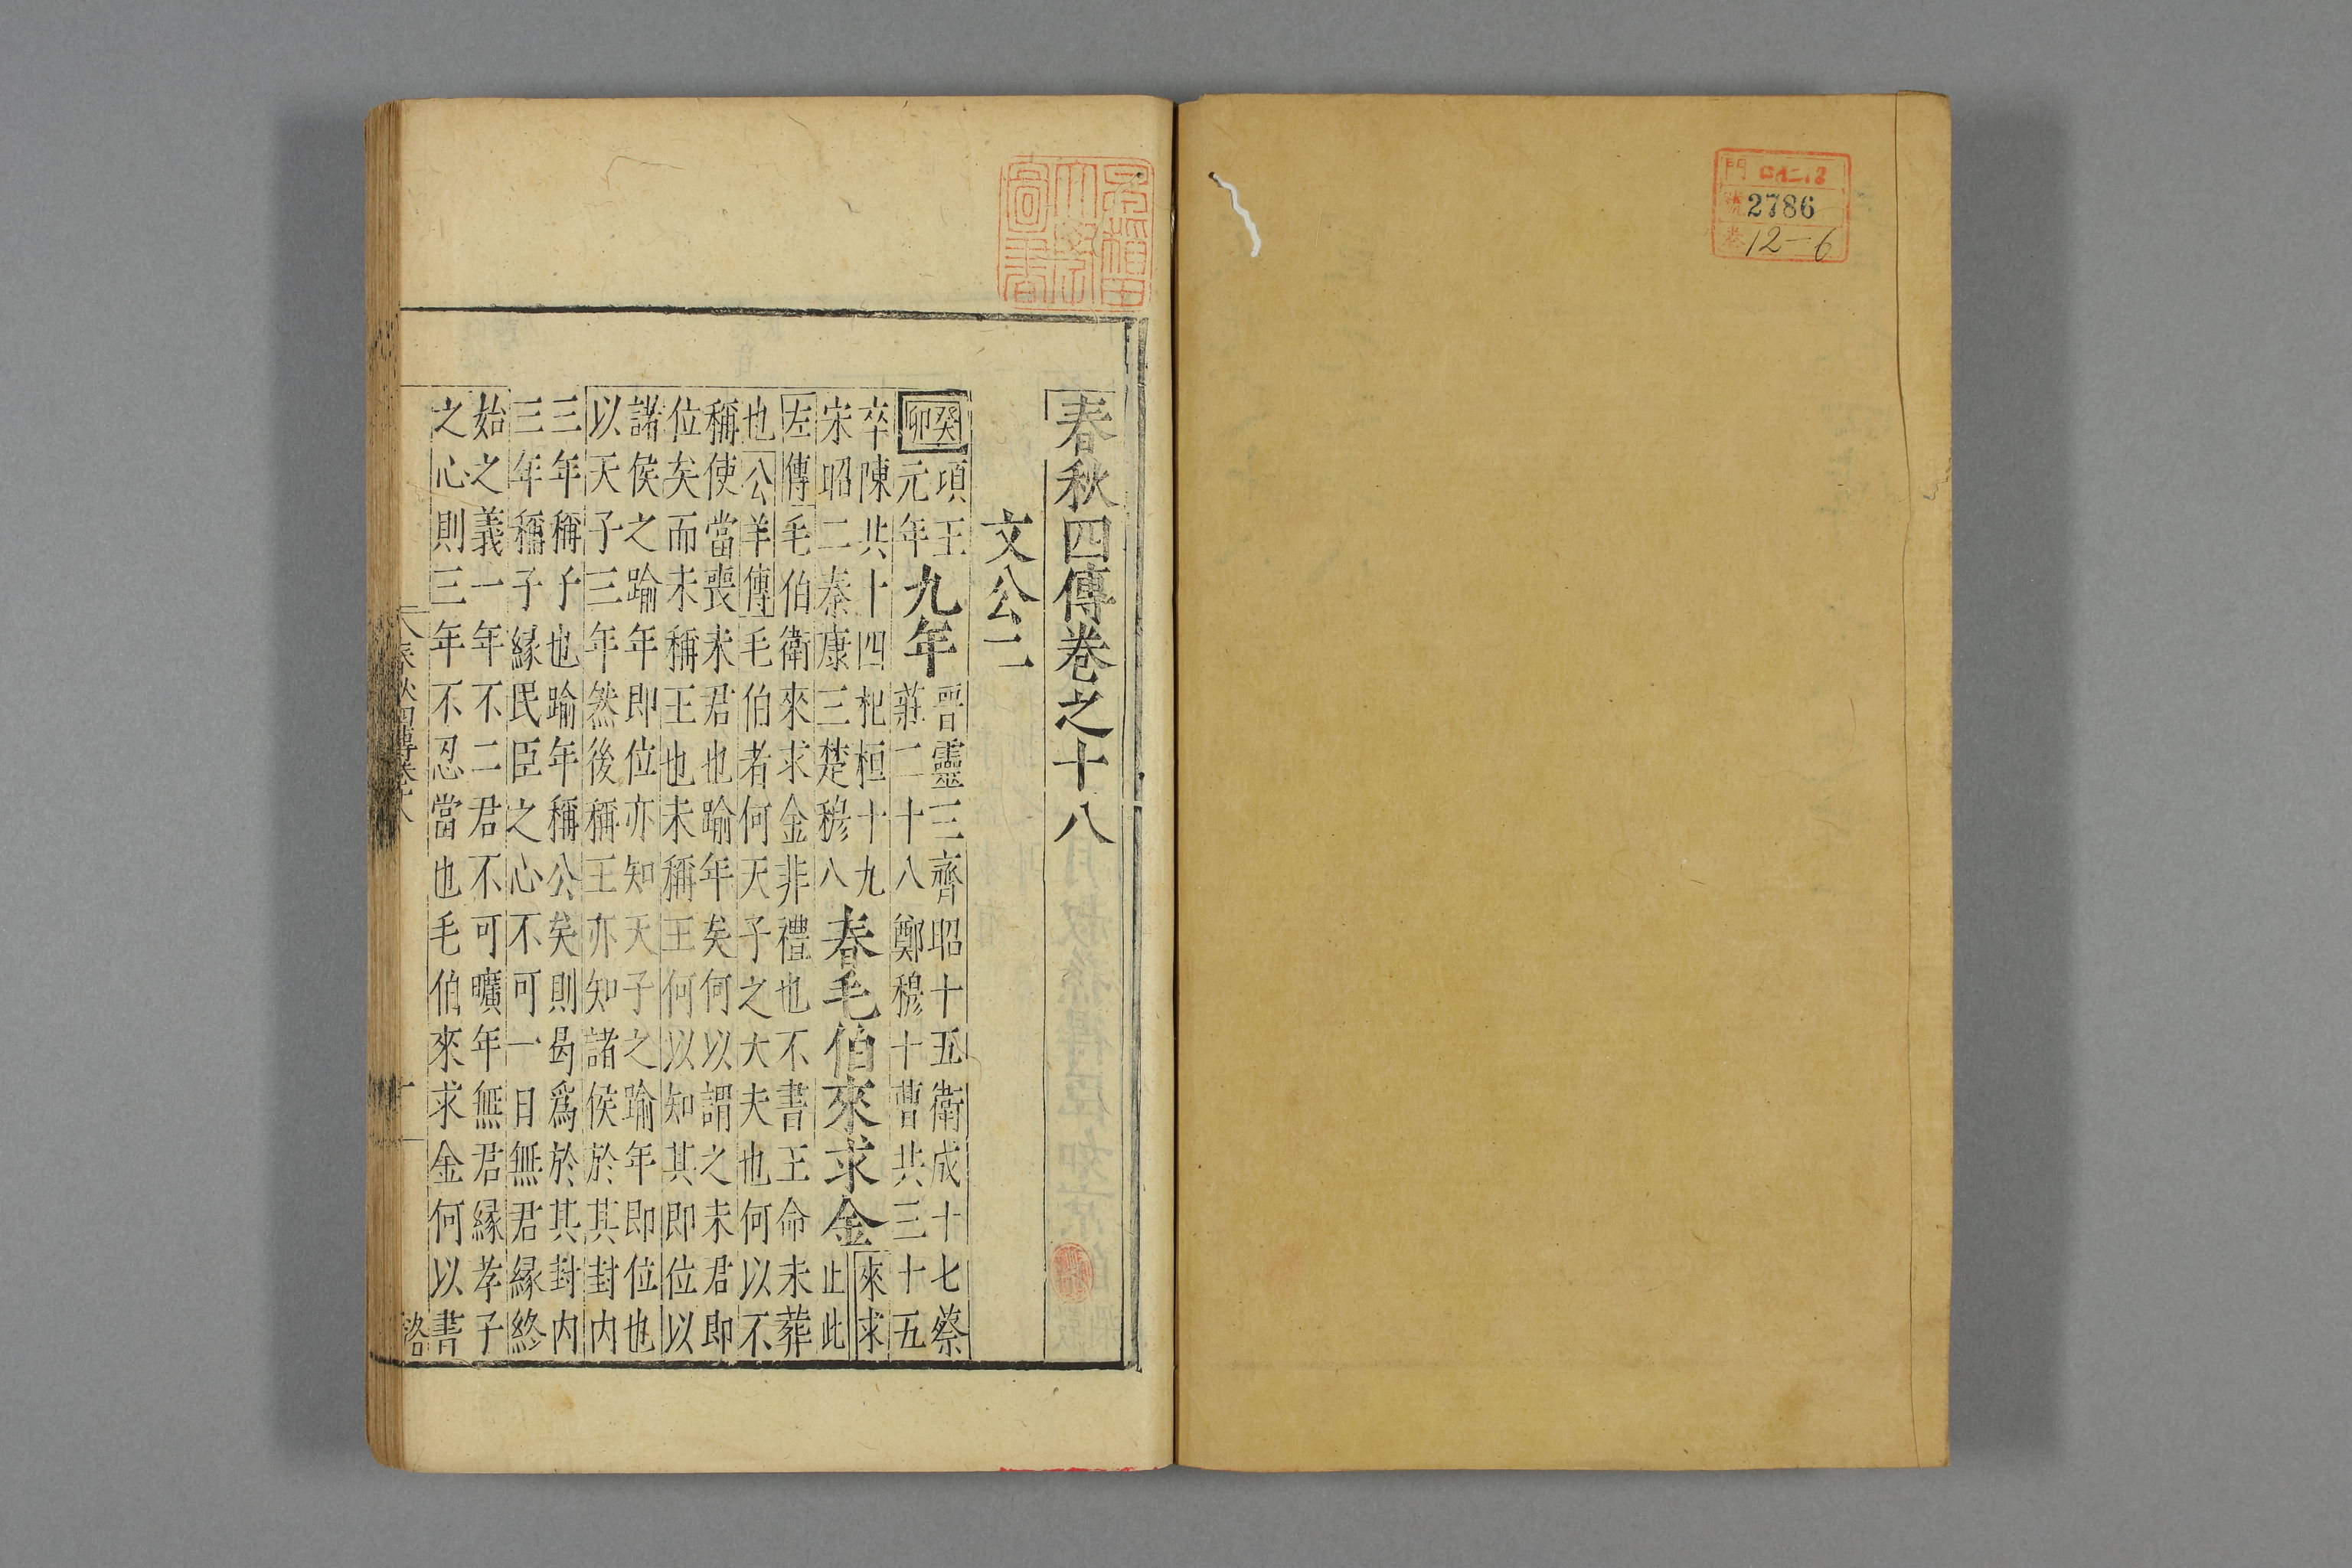 門 ロ12
號 2786
卷 12-6
春秋四傳卷之十八
文公二
癸卯
項王
元年
九年
晉靈三齊昭十五衛成十七蔡
莊二十八鄭穆十曹共三十五
卒陳共十四杞桓十九
宋昭二秦康三楚穆八
春毛伯來求金
來求
止此
左傳毛伯衛來求金非禮也不書王命未葬
也公羊傳毛伯者何天子之大夫也何以不
稱使當喪未君也踰年矣何以謂之未君即
位矣而未稱王也未稱王何以知其即位以
諸侯之踰年即位亦知天子之踰年即位也
以天子三年然後稱王亦知諸侯於其封内
三年稱子也踰年稱公矣則曷爲於其封内
三年稱子縁民臣之心不可一日無君縁終
始之義一年不二君不可曠年無君縁孝子
之心則三年不忍當也毛伯來求金何以書